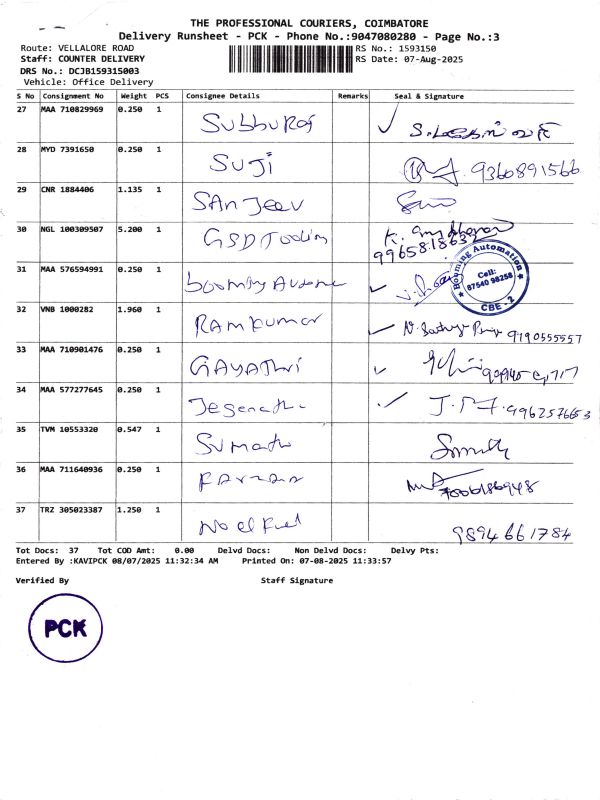 THE PROFESSIONAL COURIERS, COIMBATORE
Delivery Runsheet - PCK - Phone No.:9047080280 - Page No.:3
Route: VELLALORE ROAD RS No.: 1593150
Staff: COUNTER DELIVERY RS Date: 07-Aug-2025
DRS No.: DCJB159315003
Vehicle: Office Delivery
S No Consignment No Weight PCS Consignee Details Remarks Seal & Signature
27 MAA 710829969 0.250 1 Subburaj
28 MYD 7391650 0.250 1 SUJI 9360891566
29 CNR 1884406 1.135 1 SAnJeev
30 NGL 100309507 5.200 1 GSD Tooling
31 MAA 576594991 0.250 1 booming Booming Automation
Cell: 87540 98258
CBE - 2
32 VNB 1000282 1.960 1 RAMKUMAR 9190555557
33 MAA 710901476 0.250 1 GAYAThri
34 MAA 577277645 0.250 1 9962576653
35 TVM 10553320 0.547 1 Sumathi
36 MAA 711640936 0.250 1
37 TRZ 305023387 1.250 1 9894661784
Tot Docs: 37 Tot COD Amt: 0.00 Delvd Docs: Non Delvd Docs: Delvy Pts:
Entered By :KAVIPCK 08/07/2025 11:32:34 AM Printed On: 07-08-2025 11:33:57
Verified By Staff Signature
PCK